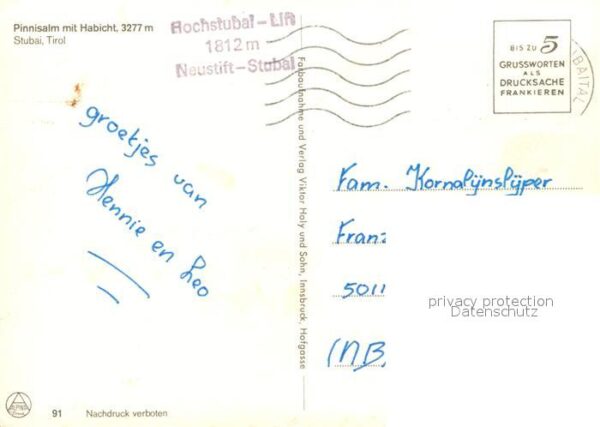 Pinnisalm mit Habicht, 3277 m
Stubai, Tirol
Hochstubai-Lift
1812 m
Neustift-Stubai
BIS ZU 5
GRUSSWORTEN
ALS
DRUCKSACHE
FRANKIEREN
UBAITAL
groetjes van
Hennie en Leo
Farbaufnahme und Verlag Viktor Holy und Sohn, Innsbruck, Hofgasse
Fam. Kornalijnslijper
Fran
5011
(NB
privacy protection
Datenschutz
91 Nachdruck verboten